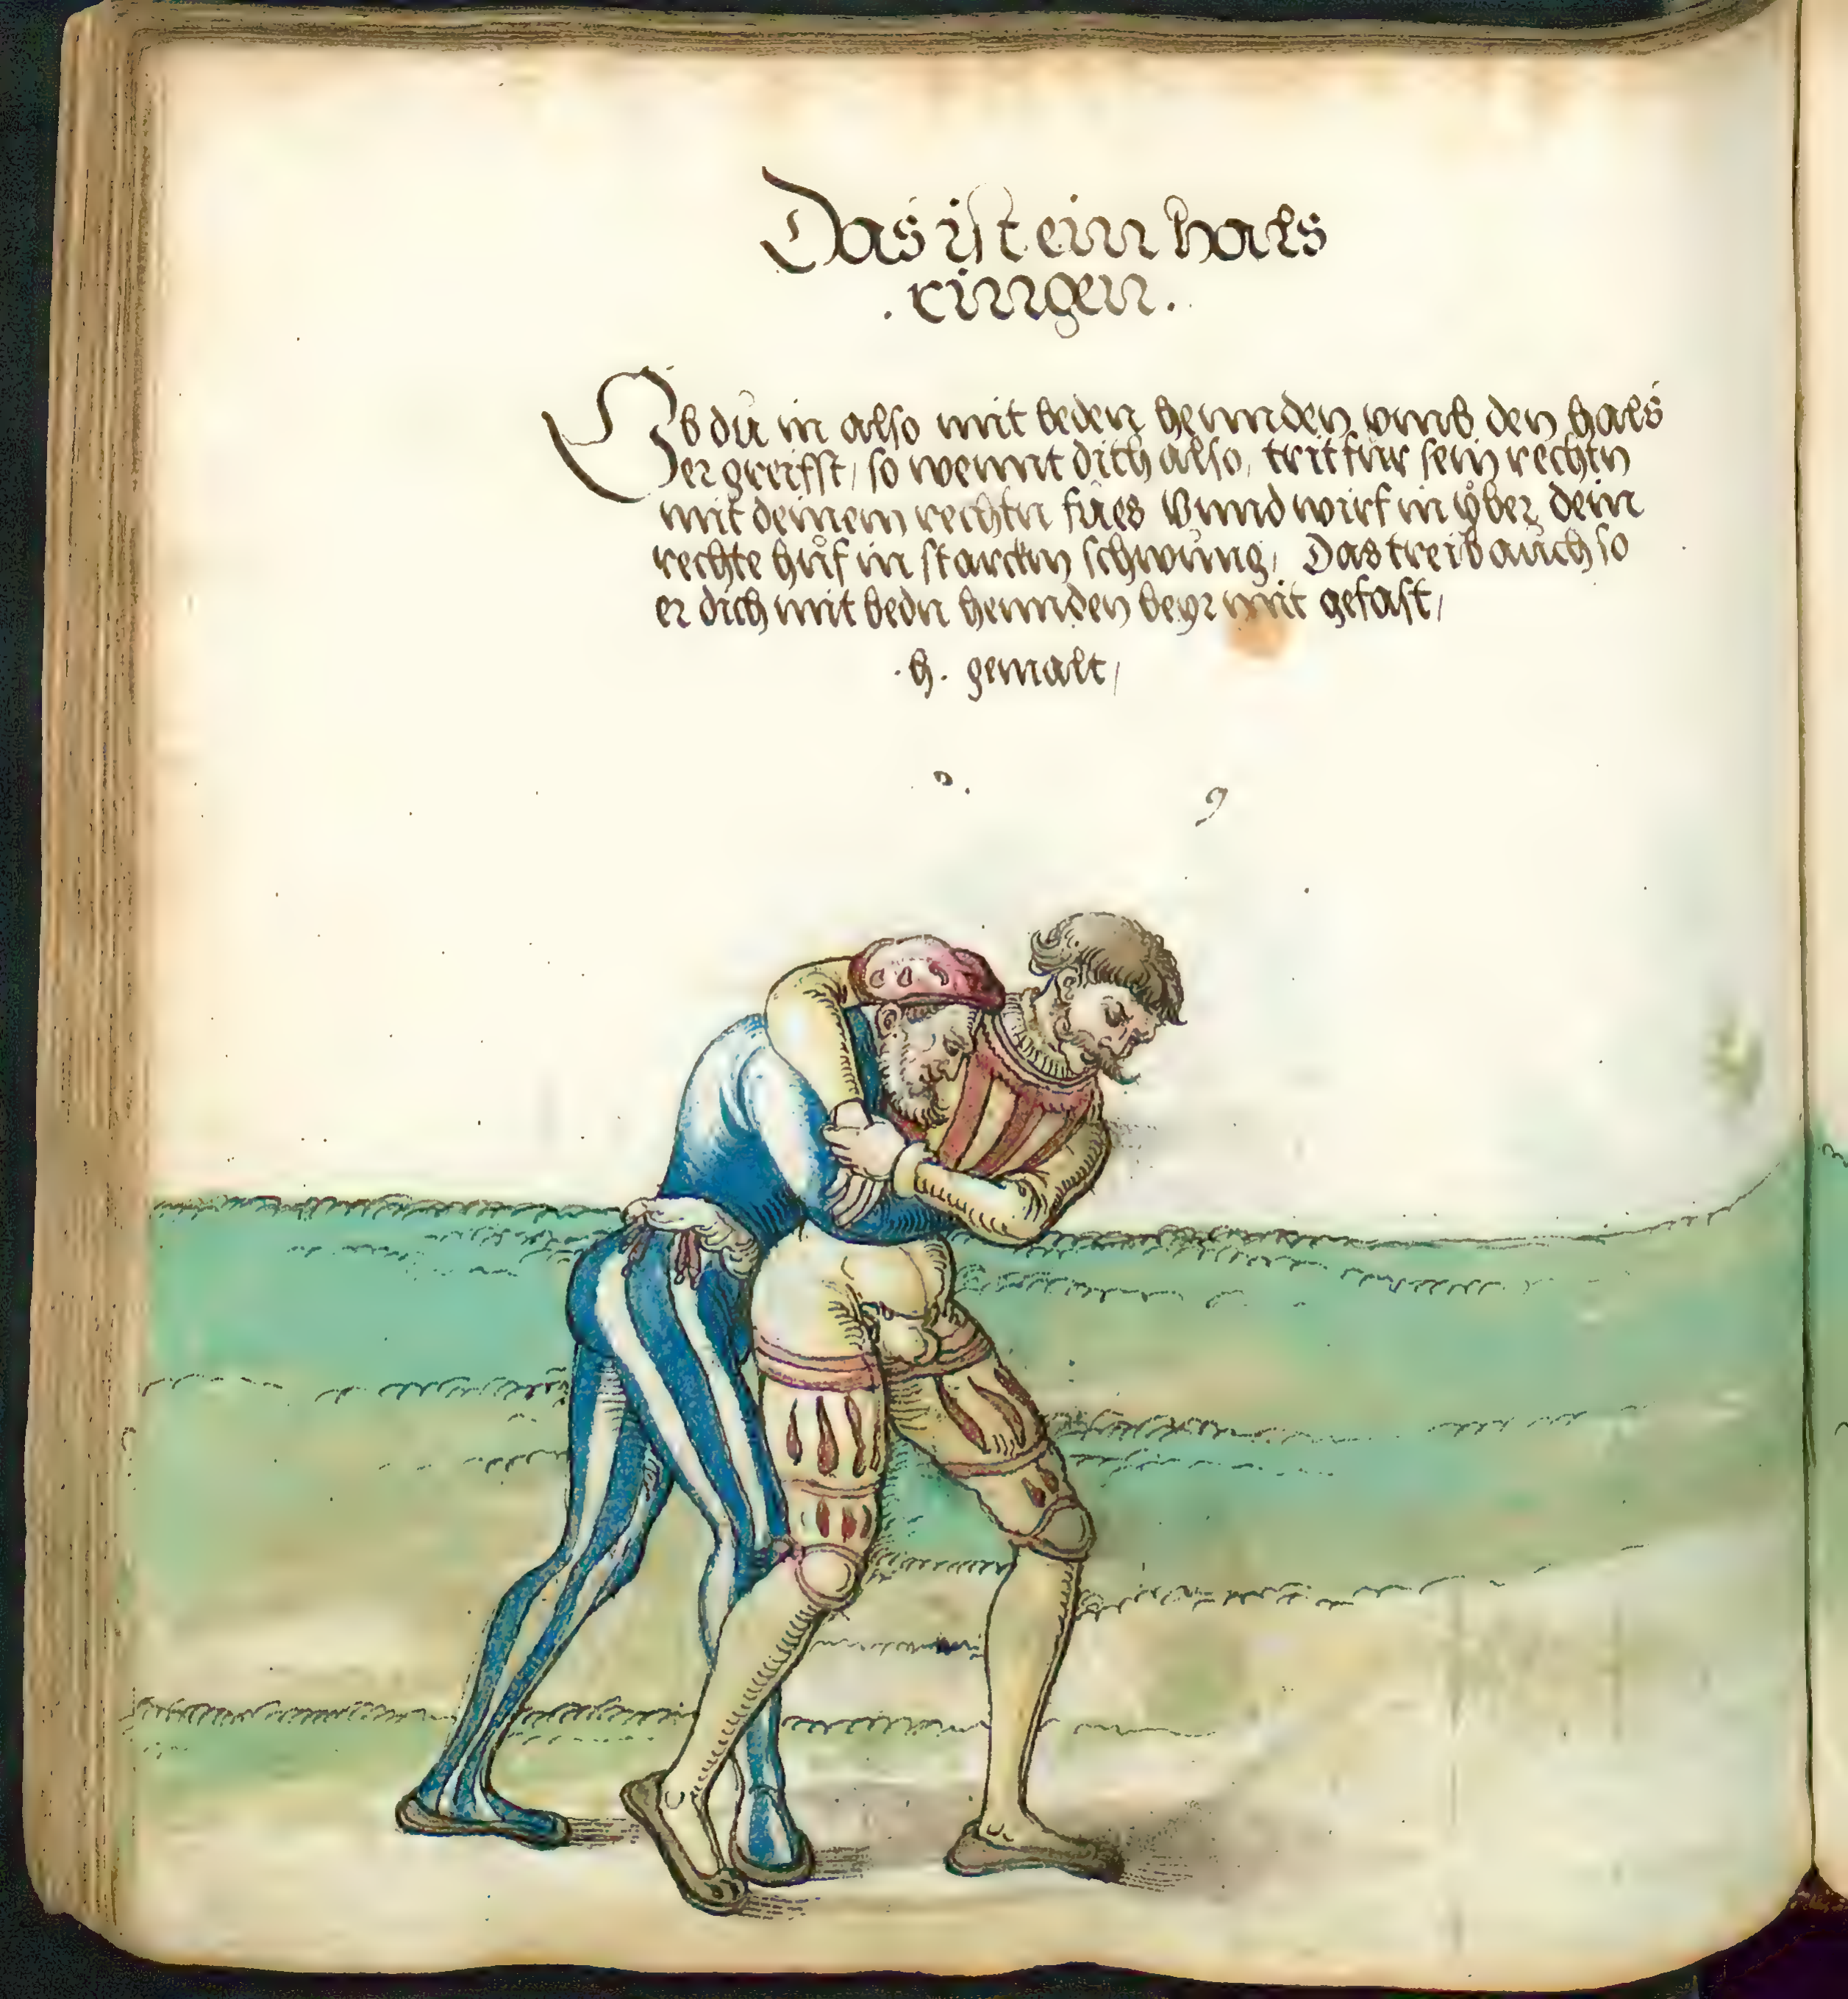 Das ist ein hals
. ringen .
Ob du in also mit beden hennden vmb den hals
ergreifft / so wennt dich also, trit fur sein rechtn
mit deinem rechtn fues vnnd wirf in yber dein
rechte huf in starckm schwung / Das treib auch so
er dich mit bedn hennden beyr mit gefast /
. h . gemalt /
9